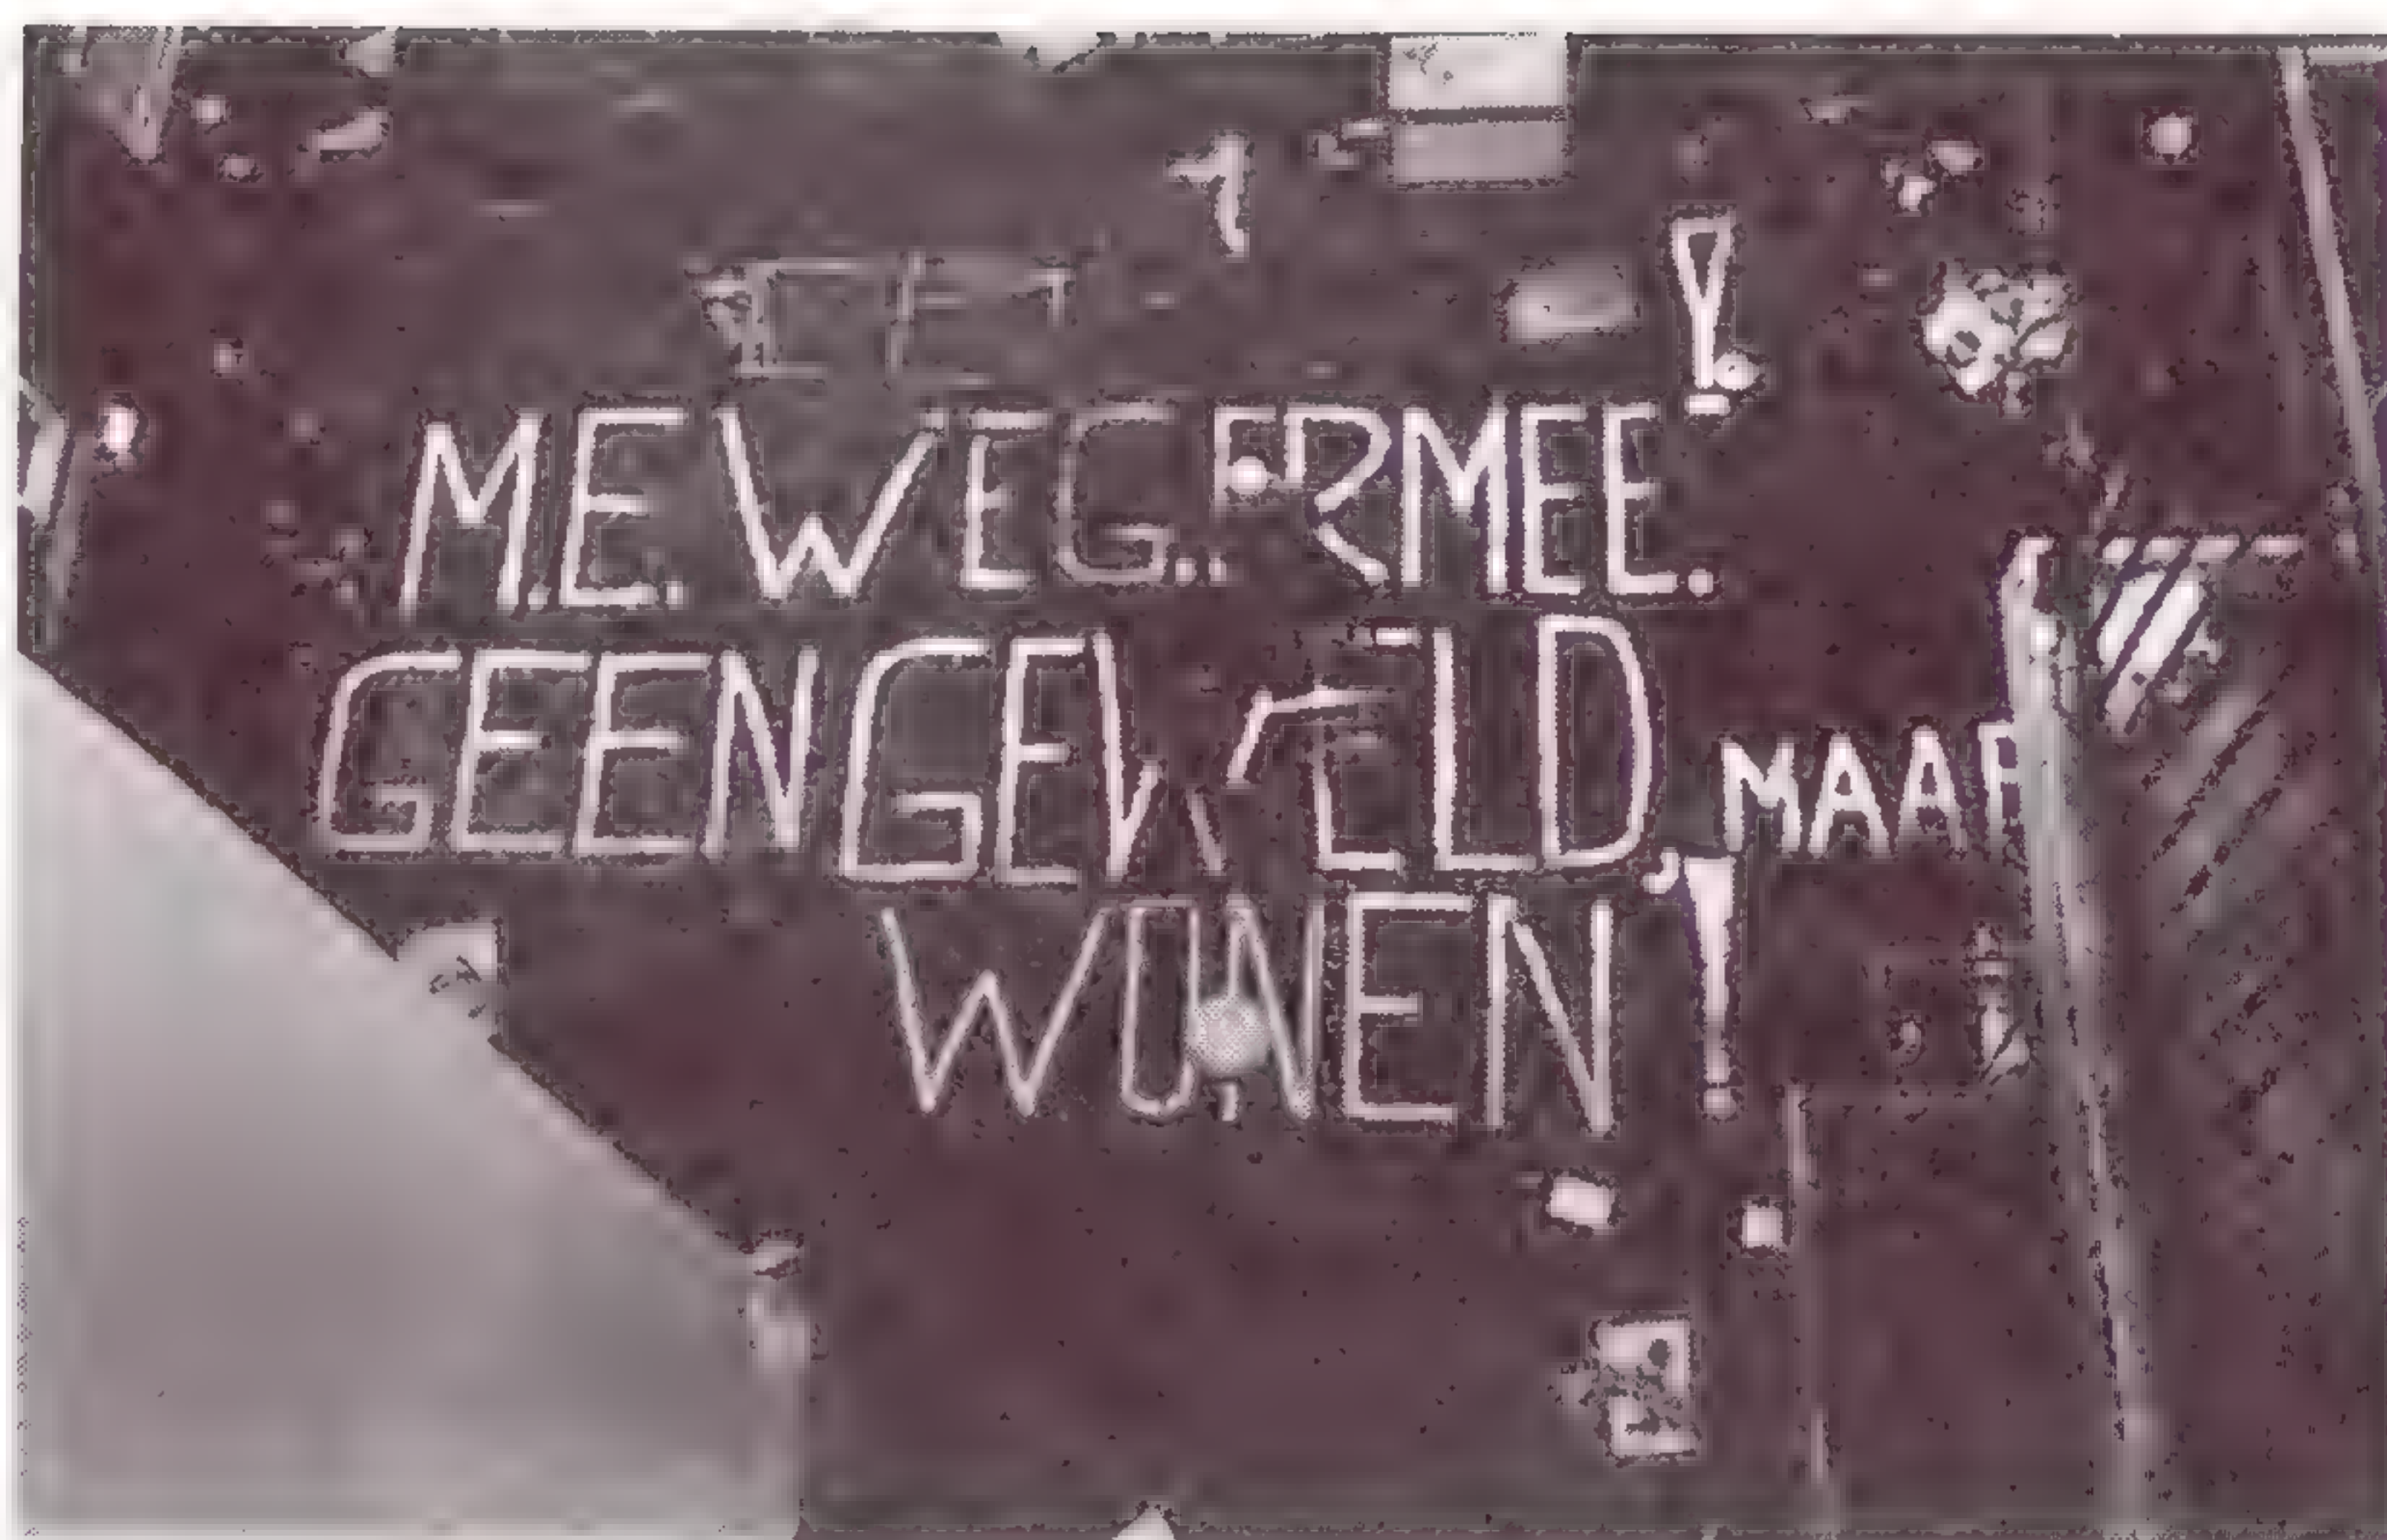 M.E. WEG.. ERMEE.!
GEEN GEWELD, MAAR
WONEN!